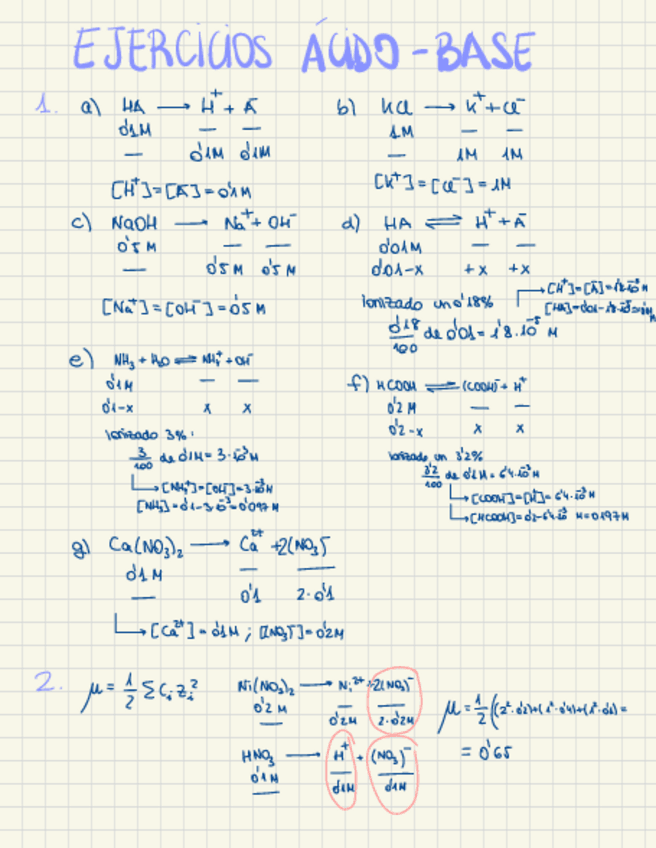 EJERCICIOS ÁCIDO-BASE
1. a) HA → H⁺ + A⁻
0'1M — —
— 0'1M 0'1M
[H⁺]=[A⁻]=0'1M
b) KCl → K⁺+Cl⁻
1M — —
— 1M 1M
[K⁺]=[Cl⁻]=1M
c) NaOH → Na⁺+OH⁻
0'5M — —
— 0'5M 0'5M
[Na⁺]=[OH⁻]=0'5M
d) HA ⇌ H⁺+A⁻
0'01M — —
0'01-x +x +x
Ionizado un 0'18%
0'18/100 de 0'01=1'8·10⁻⁵ M
[H⁺]=[A⁻]=1'8·10⁻⁵M
e) NH₃ + H₂O ⇌ NH₄⁺+OH⁻
0'1M — —
0'1-x x x
Ionizado 3%:
3/100 de 0'1M=3·10⁻³M
→[NH₄⁺]=[OH⁻]=3·10⁻³M
[NH₃]=0'1-3·10⁻³=0'097M
f) HCOOH ⇌ (COOH)⁻+ H⁺
0'2M — —
0'2-x x x
Ionizado un 3'2%
3'2/100 de 0'2M=6'4·10⁻³M
→[COOH⁻]=[H⁺]=6'4·10⁻³M
→[HCOOH]=0'2-6'4·10⁻³ M=0'197M
g) Ca(NO₃)₂ → Ca²⁺+2(NO₃)⁻
0'1M — —
— 0'1 2·0'1
→[Ca²⁺]=0'1M ; [(NO₃)⁻]=0'2M
2. μ=1/2 Σ CᵢZᵢ²
Ni(NO₃)₂ → Ni²⁺+2(NO₃)⁻
0'2M — —
— 0'2M 2·0'2M
HNO₃ → H⁺ + (NO₃)⁻
0'1M — —
— 0'1M 0'1M
μ=1/2((2²·0'2)+(1²·0'4)+(1²·0'1)=
= 0'65